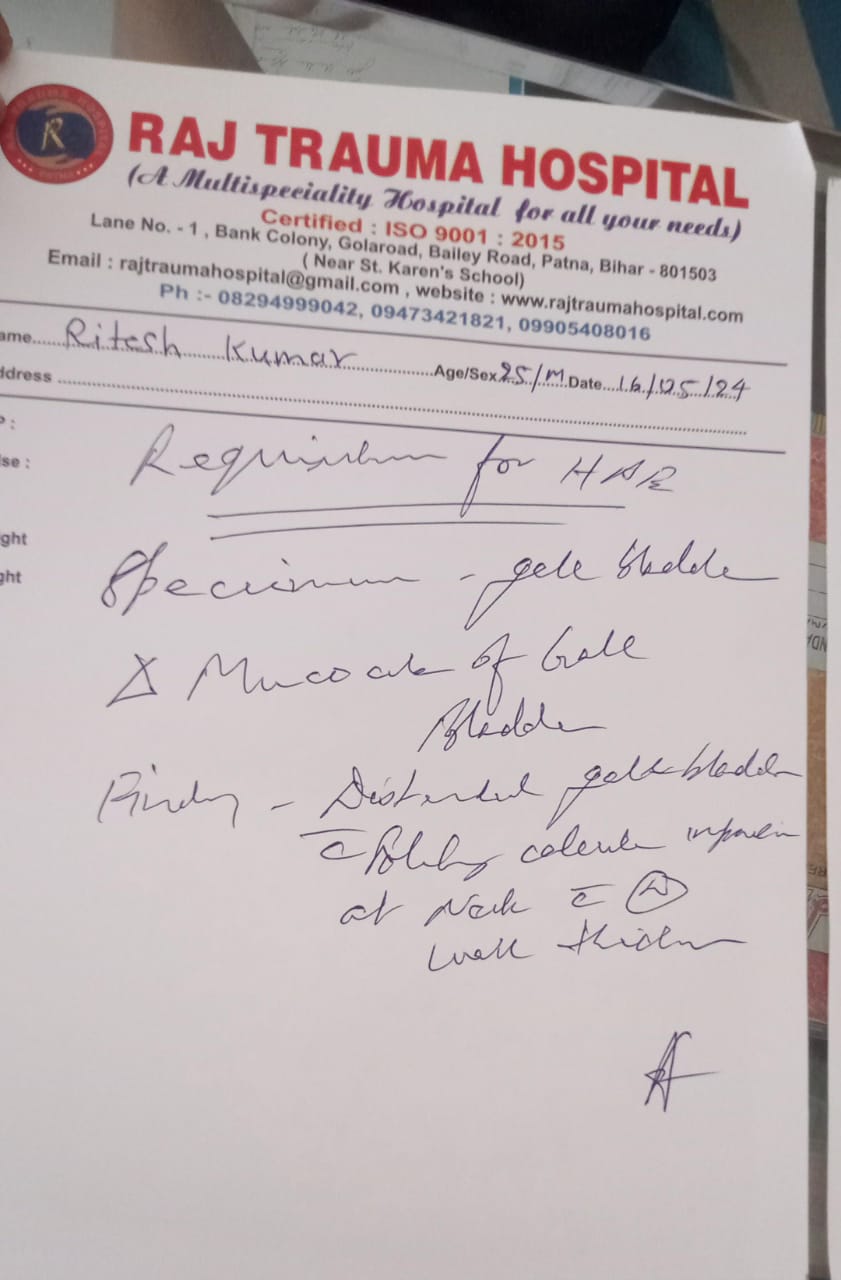 RAJ TRAUMA HOSPITAL
(A Multispeciality Hospital for all your needs)
Certified : ISO 9001 : 2015
Lane No. - 1 , Bank Colony, Golaroad, Bailey Road, Patna, Bihar - 801503
( Near St. Karen's School)
Email : rajtraumahospital@gmail.com , website : www.rajtraumahospital.com
Ph :- 08294999042, 09473421821, 09905408016
ame Ritesh Kumar Age/Sex 25/M Date 16/05/24
ddress
Requisition for HPE
Specimen - gall bladder
Δ Mucocele of Gall
Bladder
Finding - Distended gall bladder
c̄ calculi
at Neck c̄ N
wall